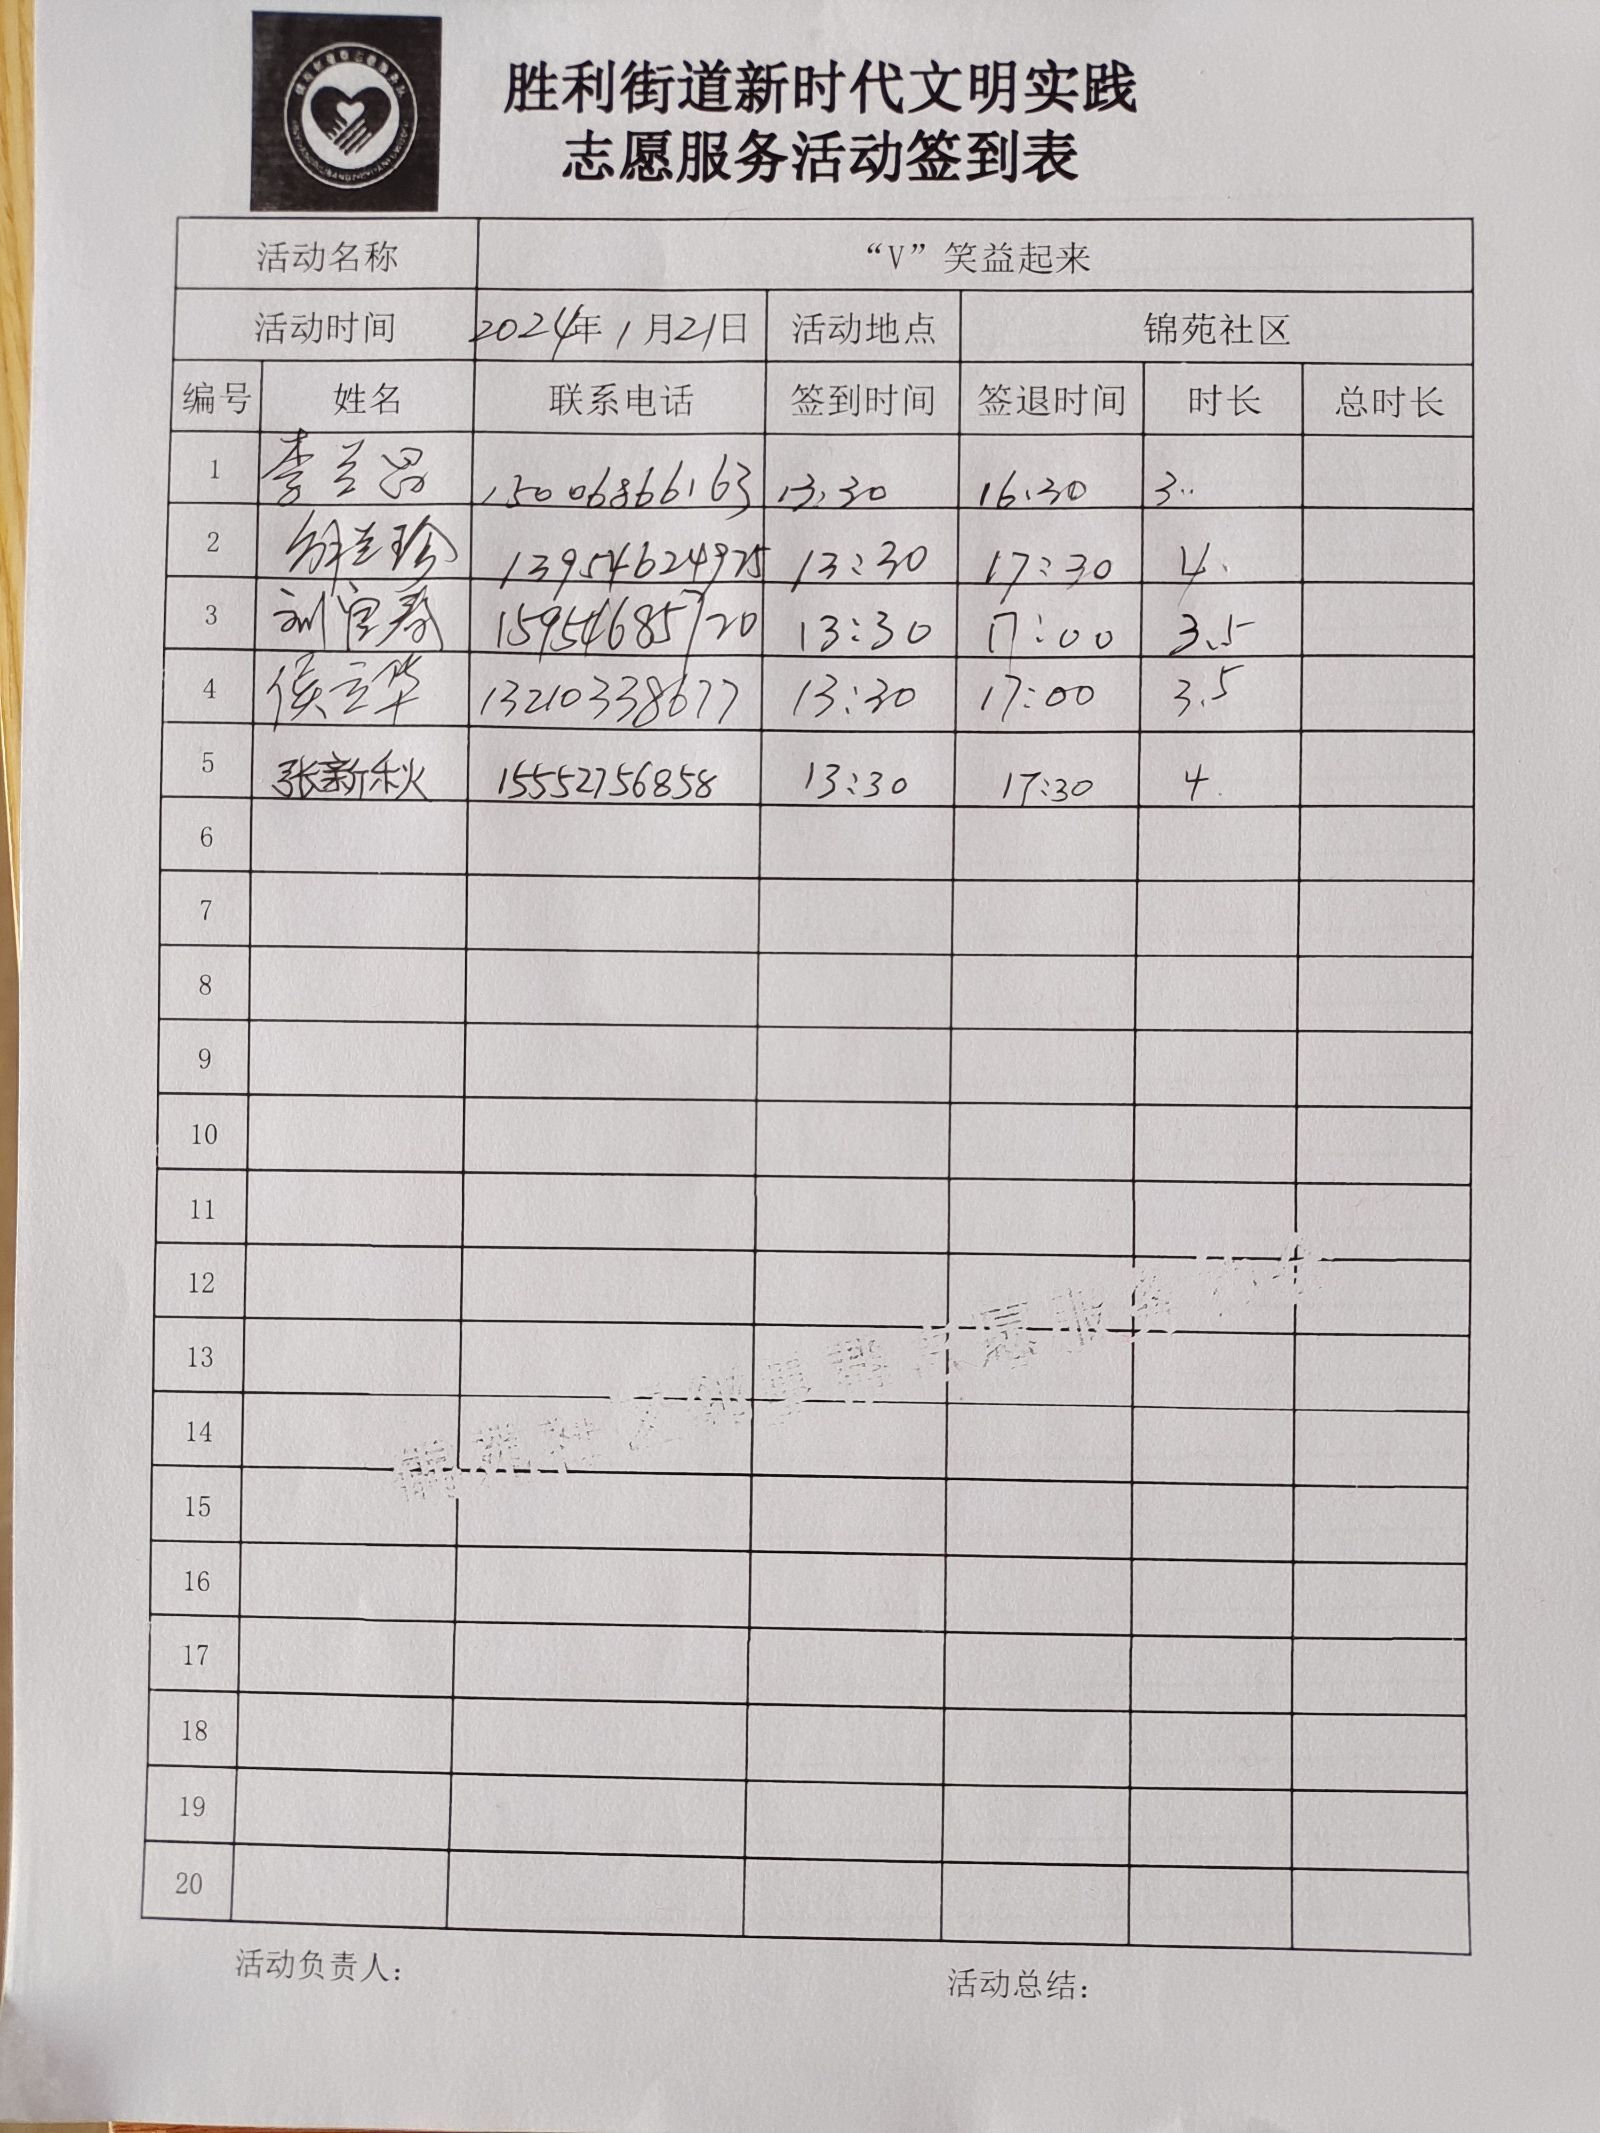 胜利街道新时代文明实践
志愿服务活动签到表
活动名称 “V”笑益起来
活动时间 2024年1月21日 活动地点 锦苑社区
编号 姓名 联系电话 签到时间 签退时间 时长 总时长
1 李兰 15006866163 13.30 16.30 3
2 兰珍 13954624975 13:30 17:30 4.
3 刘宜春 15954685720 13:30 17:00 3.5
4 侯立华 13210338677 13:30 17:00 3.5
5 张新秋 15552756858 13:30 17:30 4
6
7
8
9
10
11
12
13
14
15
16
17
18
19
20
活动负责人： 活动总结：